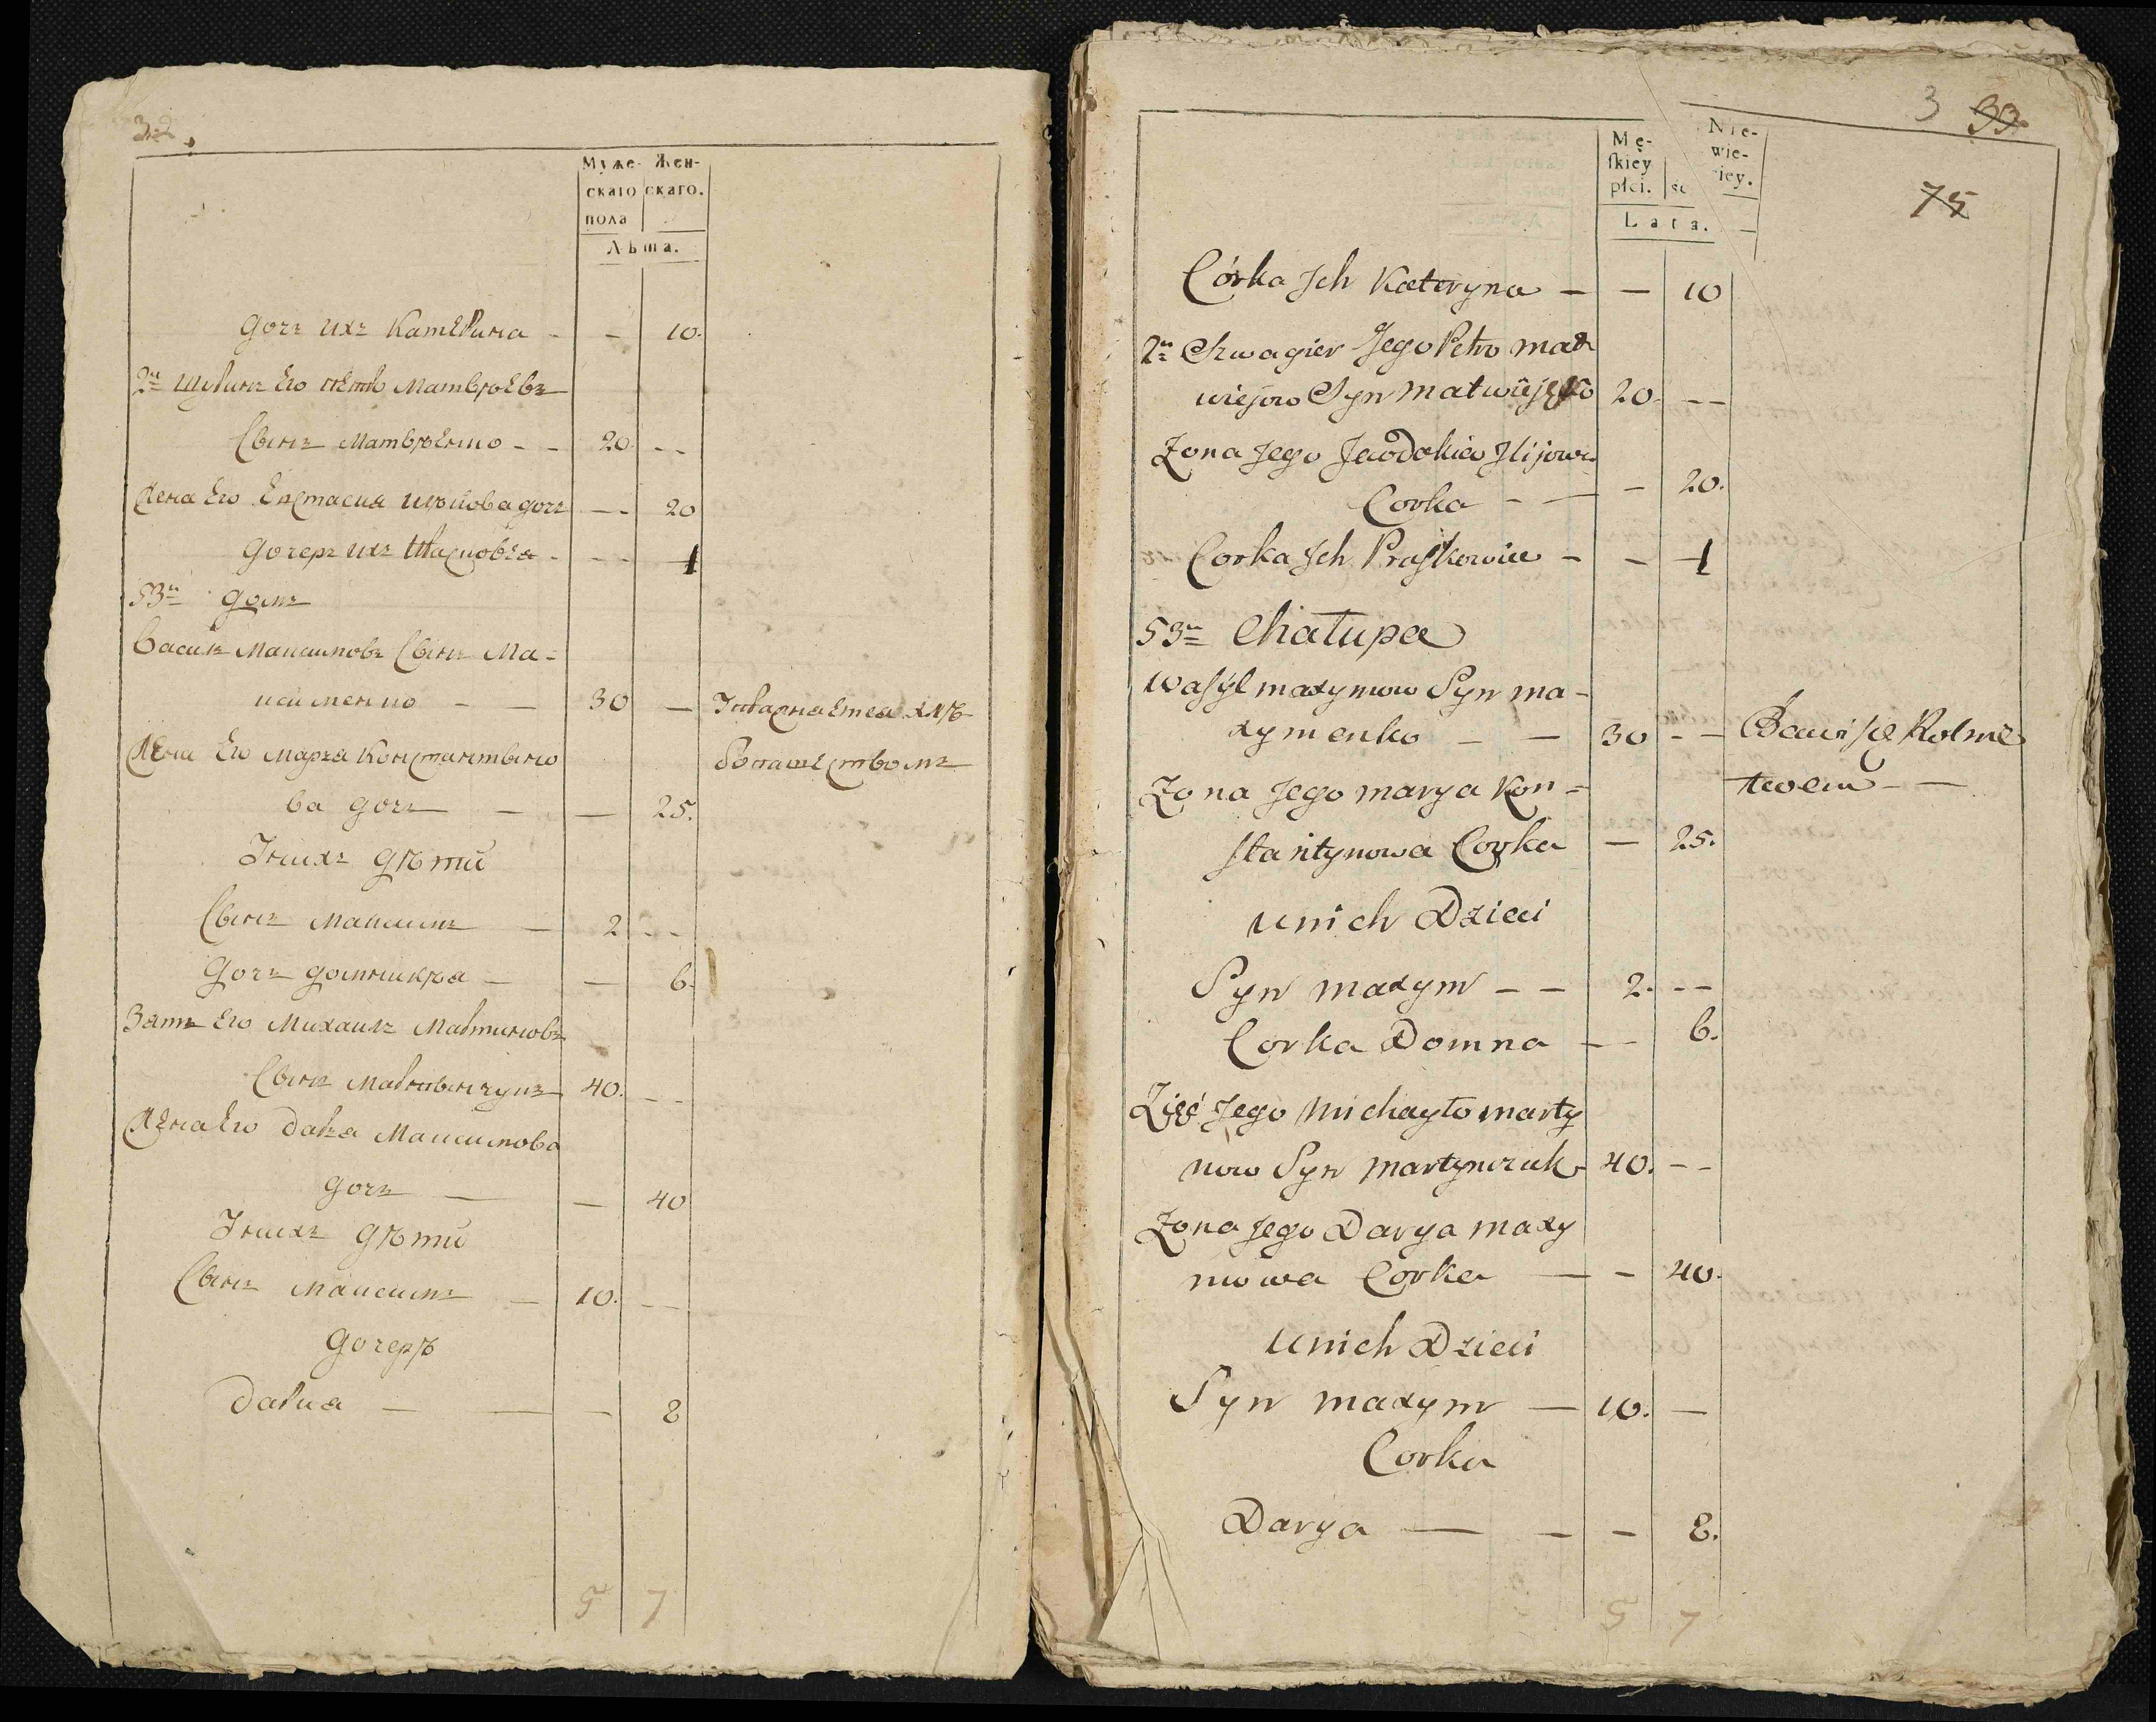 32.
Муже- Жен-
скаго скаго.
пола
Лѣта.
дочь ихъ Катерина - - 10.
2й Шуринъ Его петръ Матвѣевъ
Сынъ Матвѣенко - - 20. --
Жена Его дочь -- 20
дочерь ихъ - -- 1
53й домъ
Василь Максимовъ Сынъ Ма-
ксименко - - 30 —
Жена Его Марья Константыно
ва дочь - — 25.
Унихъ дѣти
Сынъ Максимъ - 2 --
дочь - — 6.
Зять Его Михаилъ Мартиновъ
Сынъ Мартынчукъ 40. --
Жена Его Дарья Максимова
дочь — — 40
Унихъ дѣти
Сынъ Максимъ - 10. --
дочерь
Дария - — - 8
5 7
3 33
75
Mę-
ſkiey
płci.
Nie-
wie-
ściey.
Lata.
Córka Jch Kateryna - — 10
2n Szwagier Jego Petro mat
wiejow Syn matwiejeko 20. --
Żona Jego Jewdokia Jlijowa
Corka - — - 20.
Corka Jch Praſkowia - - 1
53n Chałupa
waſyl maxymow Syn ma-
xymenko - — 30 -- Bawi ſię Rolnic
twem - —
Żona Jego marya Kon-
ſtantynowa Corka — 25.
unich Dzieci
Syn maxym -- 2. --
Corka Domna -- 6.
Zięć Jego Michayło marty
now Syn martynczuk - 40. --
Żona Jego Darya maxy
mowa Corka — - 40.
unich Dzieci
Syn maxym — 10. —
Corka
Darya — - - 8.
5 7